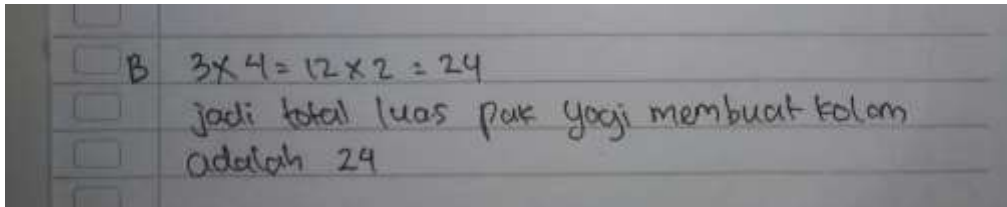 B 3x4 = 12 x 2 = 24
jadi total luas pak yogi membuat kolam
adalah 24